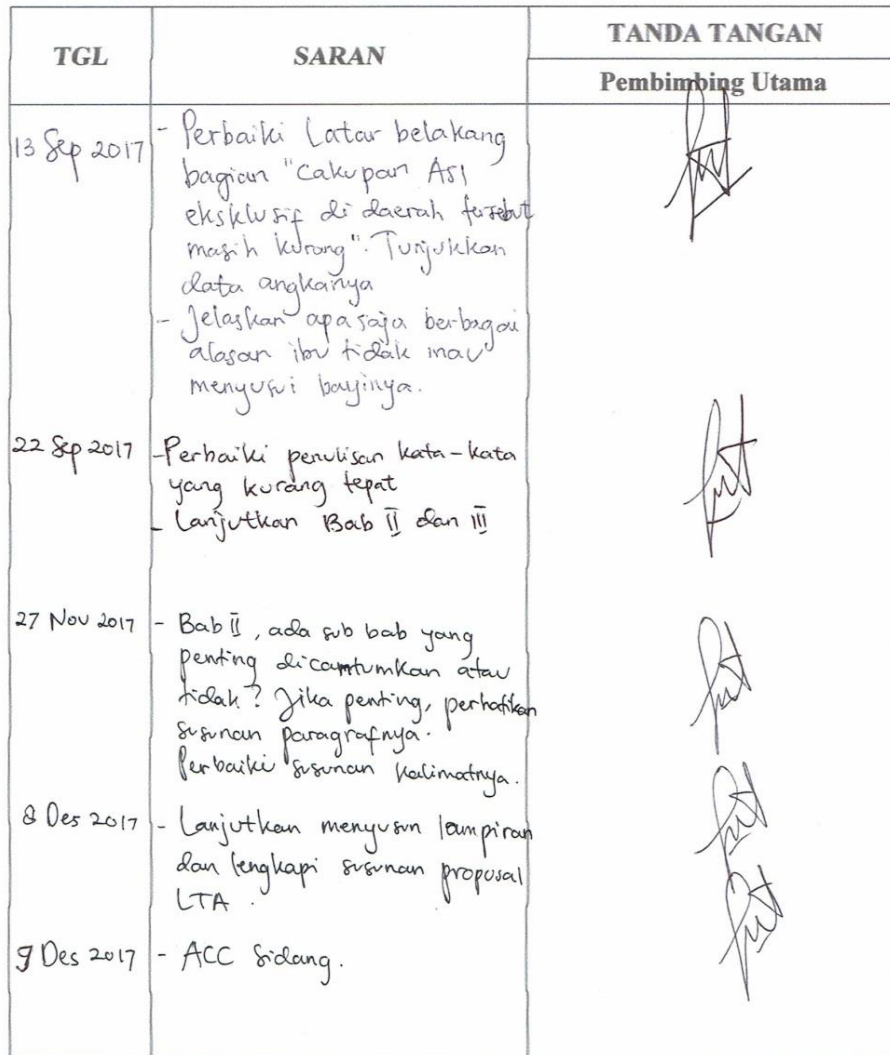 TGL
SARAN
TANDA TANGAN
Pembimbing Utama
13 Sep 2017
- Perbaiki Latar belakang
bagian "Cakupan ASI
eksklusif di daerah tersebut
masih kurang". Tunjukkan
data angkanya
- Jelaskan apa saja berbagai
alasan ibu tidak mau
menyusui bayinya.
22 Sep 2017
- Perbaiki penulisan kata-kata
yang kurang tepat
- Lanjutkan Bab II dan III
27 Nov 2017
- Bab II, ada sub bab yang
penting dicantumkan atau
tidak? Jika penting, perhatikan
susunan paragrafnya.
Perbaiki susunan kalimatnya.
8 Des 2017
- Lanjutkan menyusun lampiran
dan lengkapi susunan proposal
LTA.
9 Des 2017
- ACC Sidang.